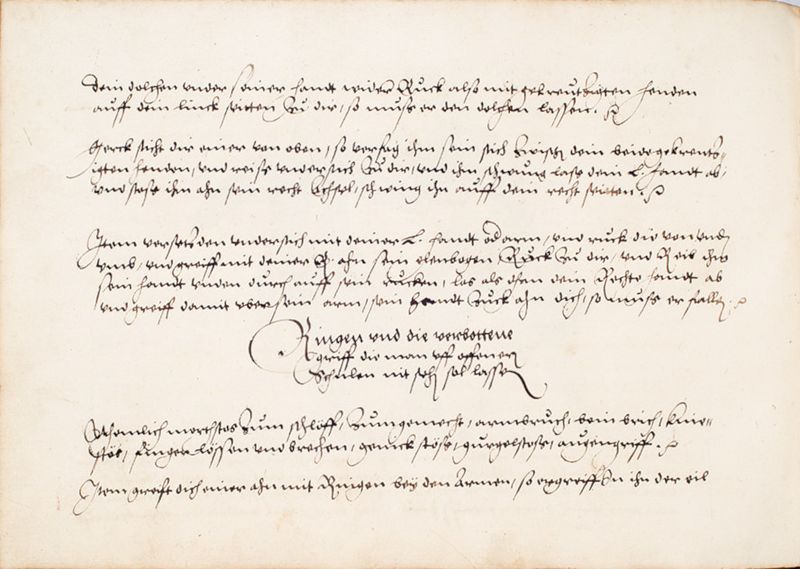 dein dolchen vnder seiner handt wider Ruck also mit gekreutzigten henden
auff dein linck seitten zu dir, so muss er den dolchen lassen.
Merck sticht dir einer von oben, so verfag ihm sein stich zwisch dein beide gekreutz-
igten henden, vnd reiss vndersich zu dir, vnd ihm schwung lass dein L. handt ab,
vnd stoss ihn ahn sein recht Achsel, schwing ihn auff dein recht seitten.
Item versetz den vndersich mit deiner L. handt od arm, vnd ruck die von vnden
vmb, vnd greiff mit deiner R. ahn sein elenbogen Ruck zu dir, vnd eil ihm
sein handt vnden durch auff sein rucken, las als ofen dein Rechte handt ab
vnd greiff damit vber sein arm, sein handt Zuck ahn dich, so muss er fallen.
Ringen vnd die verbottene
griff die man vff offenen
Schulen nit sehen sol lassen
Nemlich mordtstos zum schlaff, zum gemecht, armbruch, bein brich, knie-
stös, finger lössen vnd brechen, genick stöss, gurgelstoss, augengriff.
Item greift dich einer ahn mit Ringen bey den Armen, so ergreiff in ihn der eil